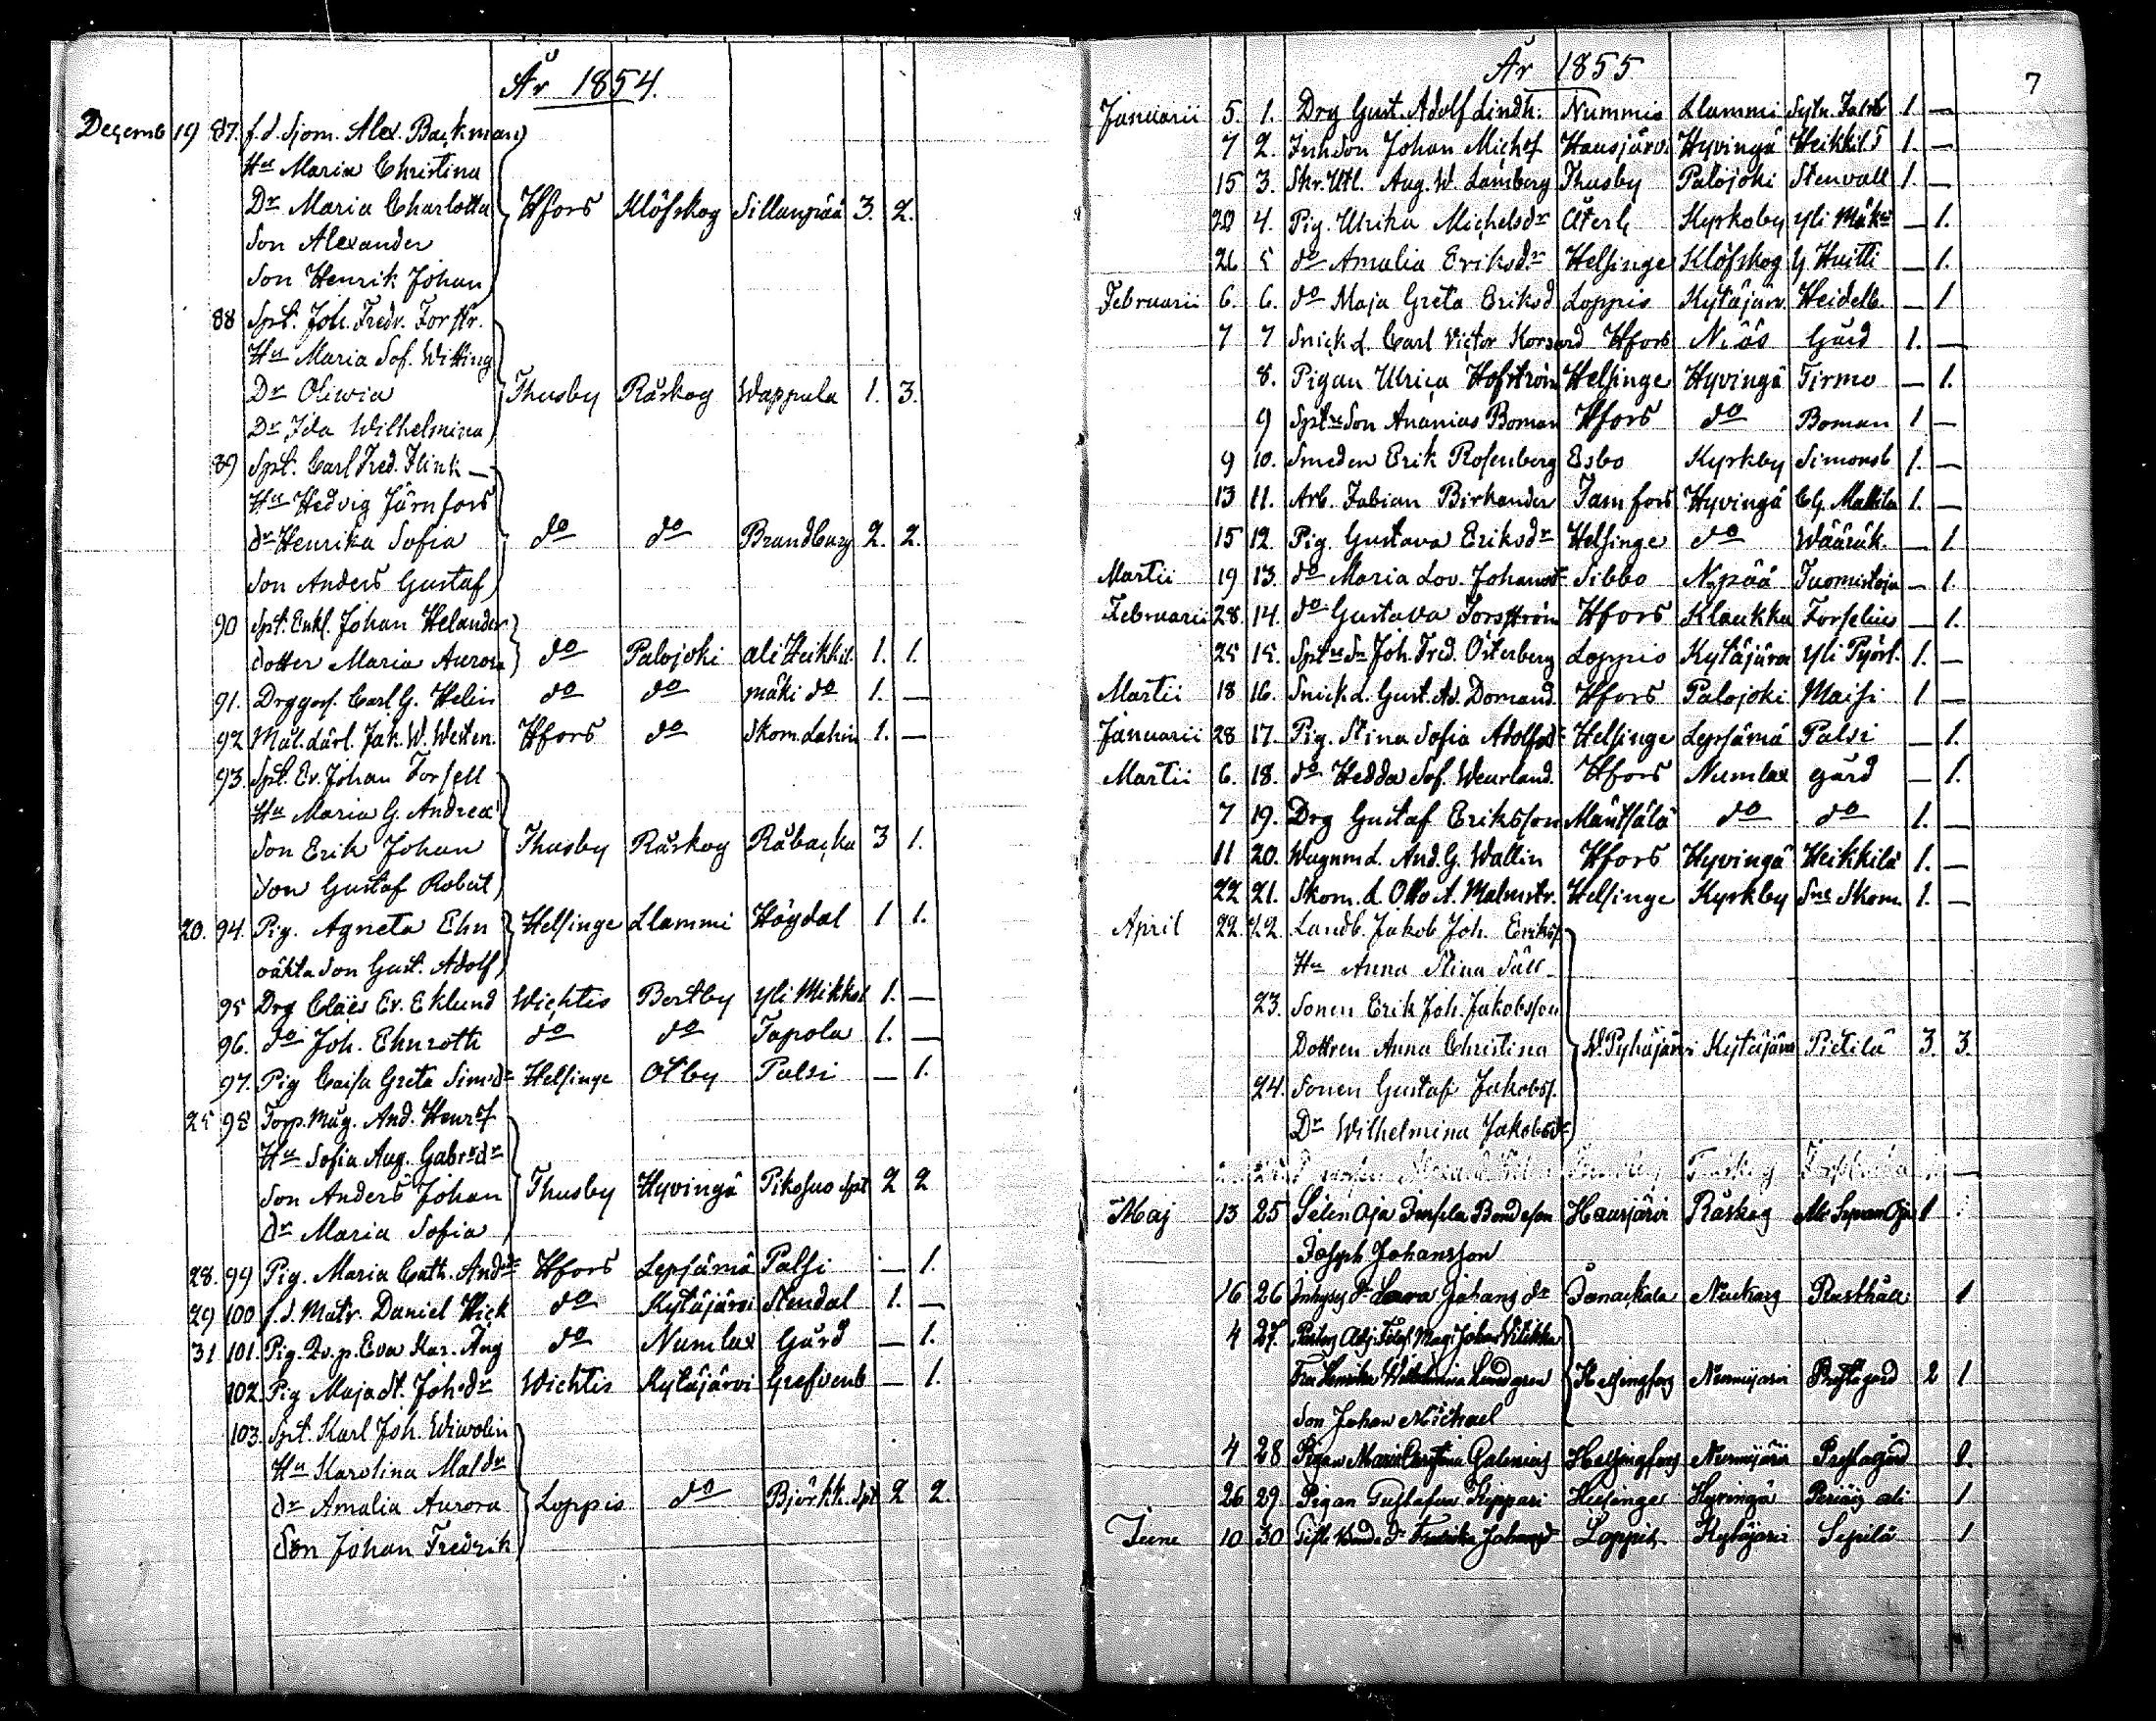 År 1854.
Decemb 19 87. f.d. Sjom. Alex. Backman
Hu Maria Christina
Dr Maria Charlotta Hfors Klöfskog Sillanpää 3. 2.
Son Alexander
Son Henrik Johan
88 Spt. Joh. Fredr. Forstr.
Hu Maria Sof. Witting
Dr Olivia Thusby Råskog Wappula 1. 3.
Dr Ida Wilhelmina
89 Spt. Carl Fred. Flink
Hu Hedvig Järnfors
dr Henrika Sofia do do Brandberg 2. 2.
Son Anders Gustaf
90 Spt. Enkl. Johan Helander
dotter Maria Aurora do Palojoki ali Heikkil. 1. 1.
91. Drggoss. Carl G. Helin do do mäki do 1. —
92 Mål. Lärl. Joh. W. Westen. Hfors do Skom. Lahin 1. —
93. Spt. Er. Johan Forsell
Hu Maria G. Andrea
Son Erik Johan Thusby Råskog Råbacka 3 1.
Son Gustaf Robert
20. 94. Pig. Agneta Ehn Helsinge Llammi Högdal 1 1.
oäkta Son Gust. Adolf
95 Drg Claës Er. Eklund Wichtis Bertby Yli Mikkol 1. —
96. do Joh. Ehnroth do do Tapola 1. —
97. Pig Caisa Greta Simsdr Helsinge Olby Palsi — 1.
25 98 Torp. Måg. And. Henrs
Hu Sofia Aug. Gabrsdr
Son Anders Johan Thusby Hyvingä Pikosuo Spt 2 2
dr Maria Sofia
28. 99 Pig. Maria Cath. Andsdr Hfors Lepsämä Palsi — 1.
29 100 f.d. Matr. Daniel Wick do Kytäjärvi Stendal 1. —
31 101. Pig. Qv.p. Eva Kar. Ång do Numlax Gård — 1.
102. Pig Maja St. Johsdr Wichtis Kytäjärvi Grefvenb — 1.
103. Spt. Karl Joh. Wiwolin
Hu Karolina Maldr
dr Amalia Aurora Loppis do Björkk. Spt 2 2.
Son Johan Fredrik
År 1855
7
Januarii 5. 1. Drg Gust. Adolf Lindh: Nummis Llammi Sytn. 1. —
7 2. Inh Son Johan Michs Hausjärvi Hyvingä Heikkil. S 1. —
15 3. Skr. Utl. Aug. W. Lamberg Thusby Palojoki Stenvall 1. —
22 4. Pig. Ulrika Michelsdr Kyrkoby Yli Mäk — 1.
26 5 do Amalia Eriksdr Helsinge Klöfskog G Huitti — 1.
Februarii 6. 6. do Maja Greta Eriksd Loppis Kytäjärv. Heidelb. — 1
7 7 Snick L. Carl Victor Hfors Niäs Gård 1. —
8. Pigan Ulrica Hofström Helsinge Hyvingä Tirmo — 1.
9 Spts Son Ananias Boman Hfors do Boman 1 —
9 10. Smeden Erik Rosenberg Esbo Kyrkby Simonsb 1. —
13 11. Arb. Fabian Birkander Tamfors Hyvingä Mattila 1. —
15 12 Pig. Gustava Eriksdr Helsinge do Wääräk. — 1.
Martii 19 13. do Maria Lov. Johansdr Sibbo N.pää Tuomistoja — 1.
Februarii 28 14. do Gustava Forsström Hfors Klaukka Forselius — 1.
25 15. Spts Sn Joh. Fred. Österberg Loppis Kytäjärvi Yli Pyört. 1. —
Martii 18 16. Snick. L. Gust. Ad. Domand. Hfors Palojoki Maisi 1 —
Januarii 28 17. Pig. Stina Sofia Adolfsd Helsinge Lepsämä Palsi — 1.
Martii 6. 18. do Hedda Sof. Weurland. Hfors Numlax gård — 1.
7 19. Drg Gustaf Eriksson Mäntsälä do do 1. —
11 20. Wagnm. L. And. G. Wallin Hfors Hyvingä Heikkilä 1. —
22 21. Skom. L. Otto A. Malmstr. Helsinge Kyrkby Sne Skom. 1. —
April 22 22 Landb. Jakob Joh. Eriks
Hu Anna Stina
23. Sonen Erik Joh. Jakobsson
Dottren Anna Christina W. Pyhäjärvi Kytäjärvi Pietilä 3. 3.
24. Sonen Gustaf Jakobs.
Dr Wilhelmina Jakobsdr
Maj 13 25 Bondeson Hausjärvi Råskog 1
Joseph Johansson
16 26 Inhyses dr Johans dr Janackala 1
4 27. Johan
Fru Henrika Wilhelmina Lindgren Helsingfors Nurmijärvi Prestagård 2 1
Son Johan Michael
4 28 Pigan Maria Christina Galenius Helsingfors Nurmijärvi Prestagård 1.
26 29 Pigan Gustafva Kippari Helsinge Hyvingä ali 1
June 10 30 dr Fredrika Johansd Loppis Kytäjärvi Sepilä 1